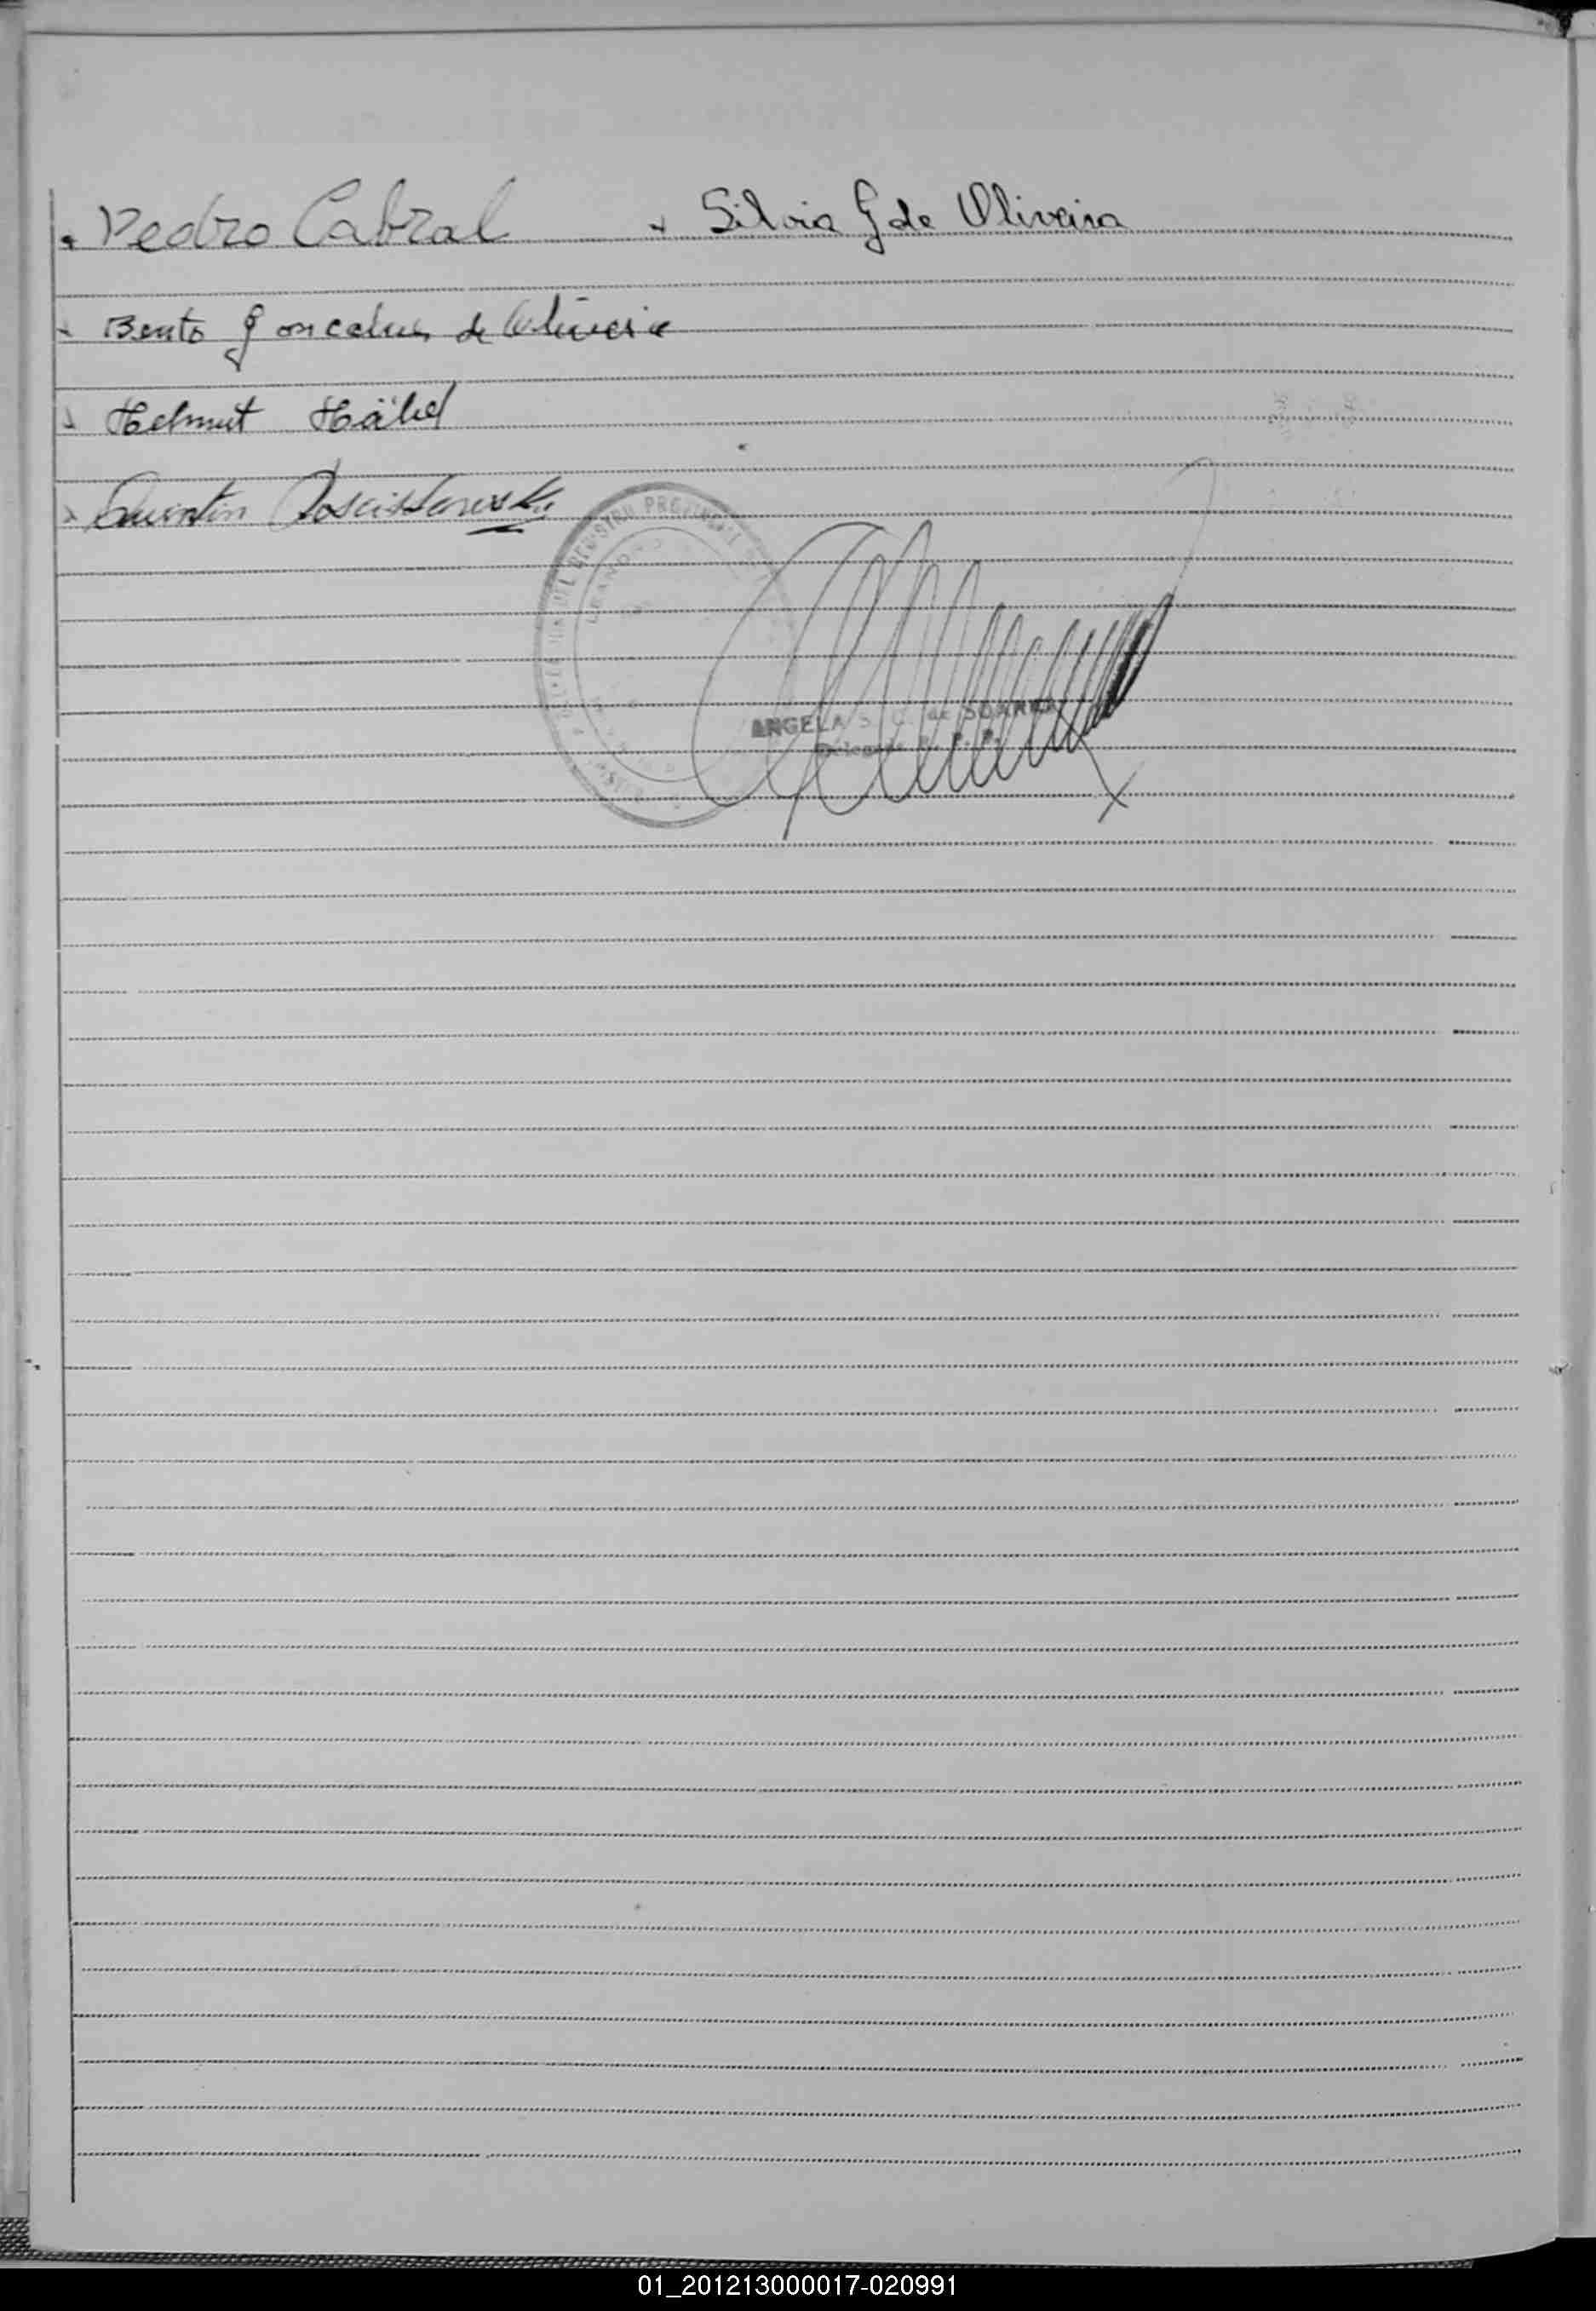 Pedro Cabral + Silvia G de Oliveira
Bento Goncalves de Oliveira
Helmut Häbel
Quintin
REGISTRO PROVINCIAL
ANGELA S. C. de SOARES
Delegada R. P. P.
01_201213000017-020991